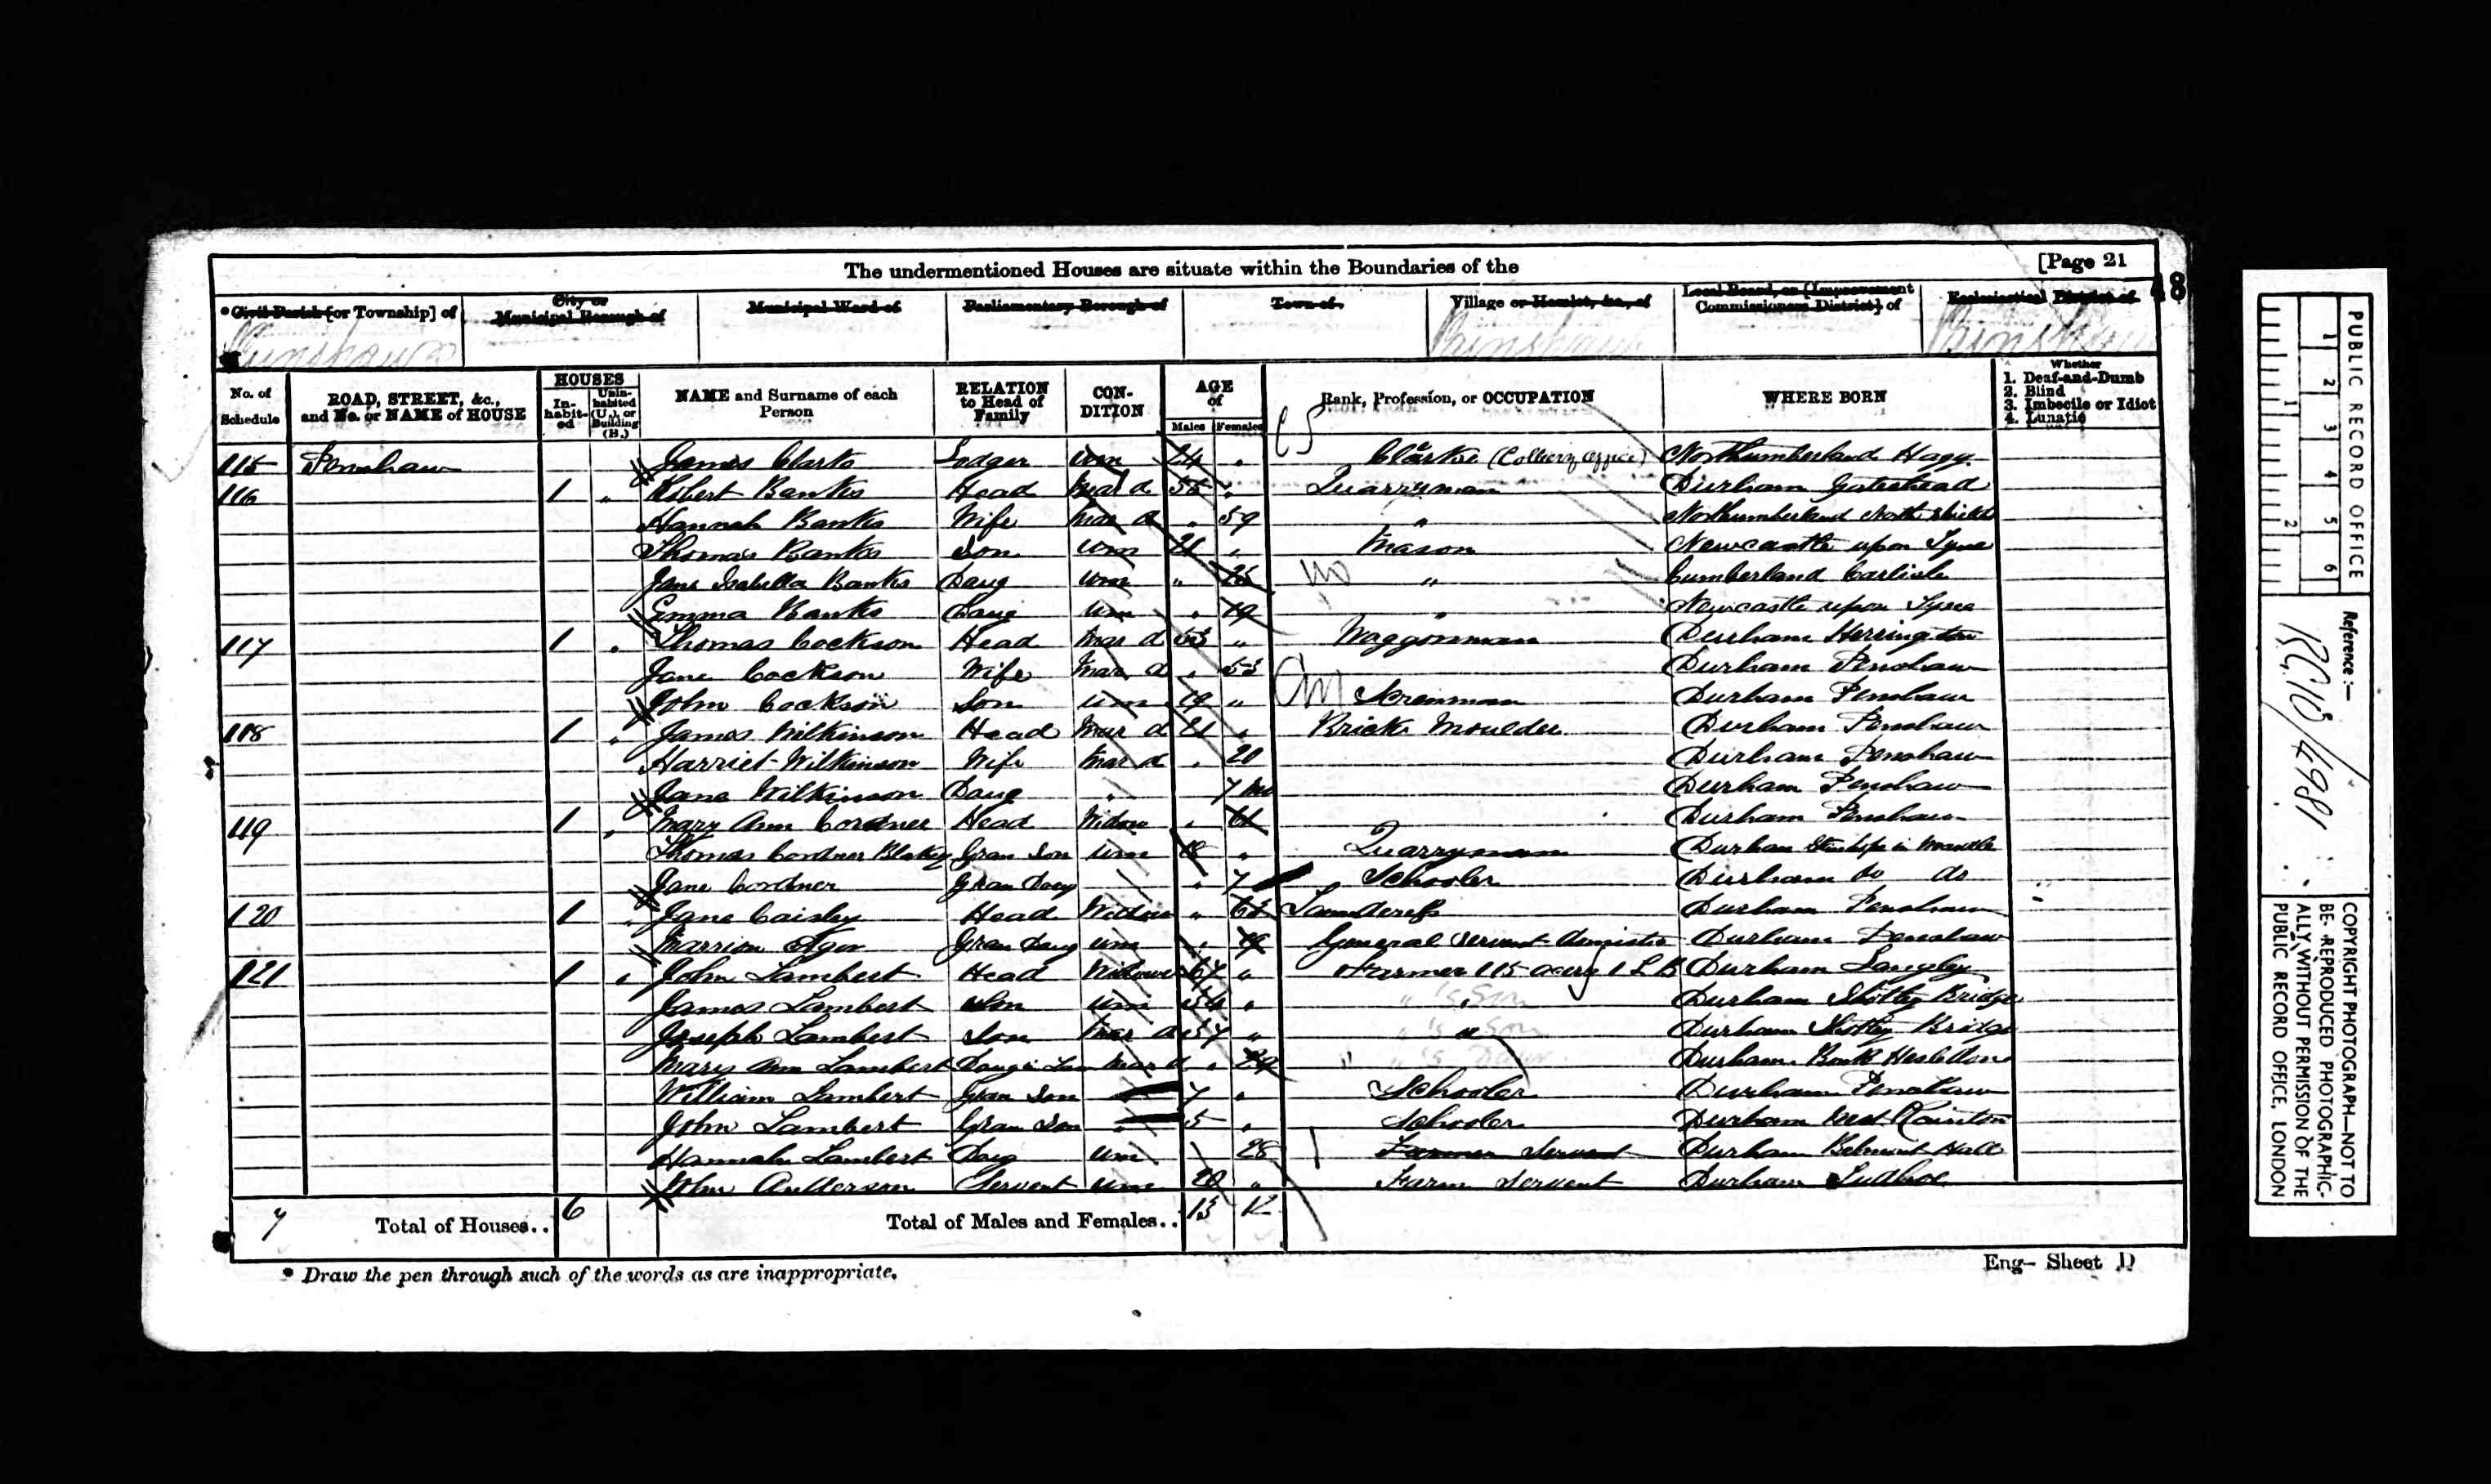 The undermentioned Houses are situate within the Boundaries of the [Page 21
48
*Civil Parish [or Township] of City or Municipal Borough of Municipal Ward of Parliamentary Borough of Town of Village or Hamlet, &c., of Local Board, or [Improvement Commissioners District] of Ecclesiastical District of
Painshaw Painshaw
No. of Schedule ROAD, STREET, &c., and No. or NAME of HOUSE HOUSES In-habit-ed Unin-habited (U.), or Building (B.) NAME and Surname of each Person RELATION to Head of Family CON-DITION AGE of Males Females Rank, Profession, or OCCUPATION WHERE BORN Whether 1. Deaf-and-Dumb 2. Blind 3. Imbecile or Idiot 4. Lunatic
115 Penshaw James Clarke Lodger Unm 24 " Clarke (Colliery office) Northumberland
116 1 " Robert Banks Head Mar d 55 " Quarryman Durham Gateshead
Hannah Banks Wife Mar d " 59 " Northumberland North Shields
Thomas Banks Son Unm 21 " Mason Newcastle upon Tyne
Jane Isabella Banks Daug Unm " 25 " Cumberland Carlisle
Emma Banks Daug Unm " 19 " Newcastle upon Tyne
117 1 " Thomas Cockson Head Mar d 53 " Waggonman Durham Herrington
Jane Cockson Wife Mar d " 53 Durham Penshaw
John Cockson Son Unm 19 " Screenman Durham Penshaw
118 1 " James Wilkinson Head Mar d 21 " Brick Moulder Durham Penshaw
Harriet Wilkinson Wife Mar d " 20 Durham Penshaw
Jane Wilkinson Daug " 7 Mo Durham Penshaw
119 1 " Mary Ann Cordner Head Widow " 61 Durham Penshaw
Thomas Cordner Blakey Gran Son Unm 18 " Quarryman Durham
Jane Cordner Gran Daug " 7 Schooler Durham do do
120 1 " Jane Caisley Head Widow " 63 Laundress Durham Penshaw
Marrion Gran Daug Unm " 19 General Servant Domestic Durham Penshaw
121 1 " John Lambert Head Widower 67 " Farmer 115 acres 1 L B Durham Langley
James Lambert Son Unm 34 " " 's Son Durham Shotley Bridge
Joseph Lambert Son Mar d 37 " " 's Son Durham Shotley Bridge
Mary Ann Lambert Daug in Law Mar d " 29 " Durham Monk Hesleden
William Lambert Gran Son 7 " Schooler Durham Penshaw
John Lambert Gran Son " 5 " Schooler Durham West Rainton
Hannah Lambert Daug Unm 28 Farmer Servant Durham Belmont Hall
John Anderson Servant Unm 20 " Farm Servent Durham Tudhoe
7 Total of Houses.. 6 Total of Males and Females.. 13 12
* Draw the pen through such of the words as are inappropriate.
Eng- Sheet D
PUBLIC RECORD OFFICE
1 2 3 4 5 6
1 2
Reference:-
RG10/4981
COPYRIGHT PHOTOGRAPH-NOT TO
BE REPRODUCED PHOTOGRAPHIC-
ALLY WITHOUT PERMISSION OF THE
PUBLIC RECORD OFFICE, LONDON